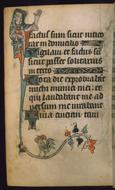 factus sum sicut nictico
rax in domicilio
Vigilaui et factus sum
sicut passer solitarius
in tecto
Tota die exprobrabant
michi inimici mei et
qui laudabant me ad
uersum me iurabant
Quia cinerem tam